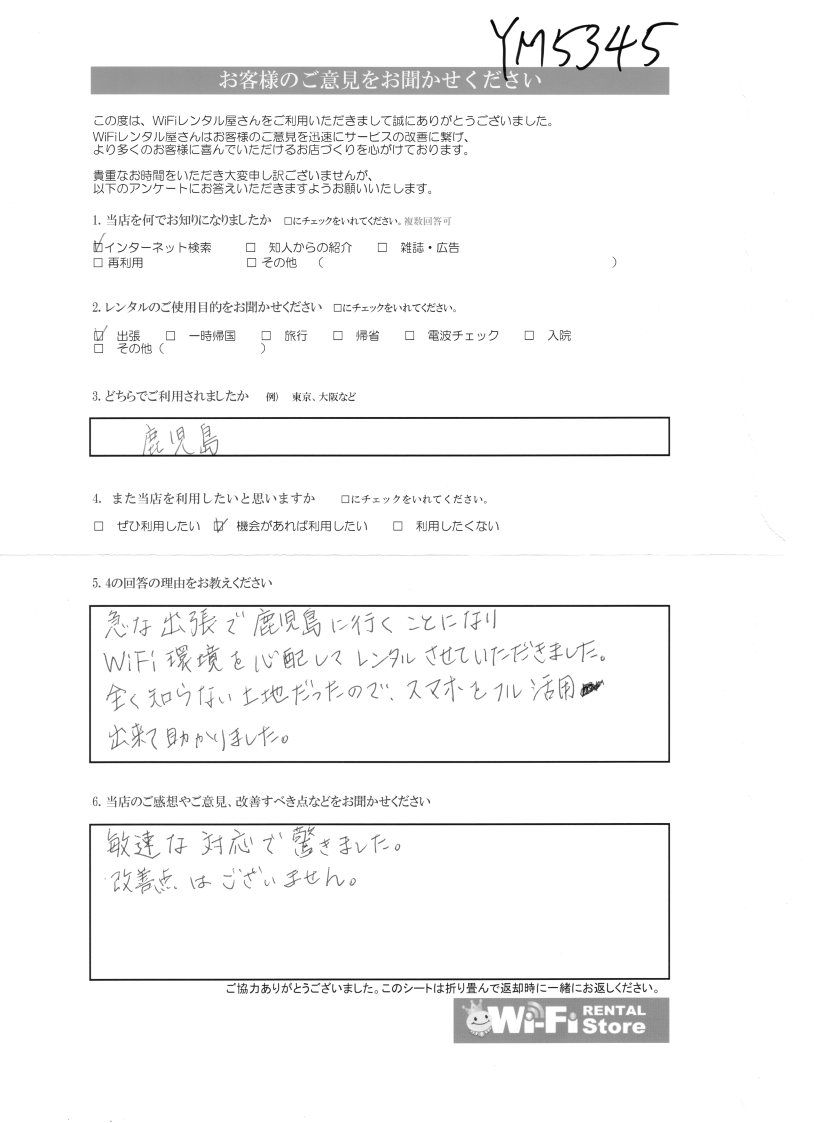 YM5345
お客様のご意見をお聞かせください
この度は、WiFiレンタル屋さんをご利用いただきまして誠にありがとうございました。
WiFiレンタル屋さんはお客様のご意見を迅速にサービスの改善に繋げ、
より多くのお客様に喜んでいただけるお店づくりを心がけております。
貴重なお時間をいただき大変申し訳ございませんが、
以下のアンケートにお答えいただきますようお願いいたします。
1. 当店を何でお知りになりましたか □にチェックをいれてください。複数回答可
☑インターネット検索 □ 知人からの紹介 □ 雑誌・広告
□ 再利用 □ その他 ( )
2. レンタルのご使用目的をお聞かせください □にチェックをいれてください。
☑ 出張 □ 一時帰国 □ 旅行 □ 帰省 □ 電波チェック □ 入院
□ その他 ( )
3. どちらでご利用されましたか 例) 東京、大阪など
鹿児島
4. また当店を利用したいと思いますか □にチェックをいれてください。
□ ぜひ利用したい ☑ 機会があれば利用したい □ 利用したくない
5. 4の回答の理由をお教えください
急な出張で鹿児島に行くことになり
WiFi環境を心配してレンタルさせていただきました。
全く知らない土地だったので、スマホをフル活用
出来て助かりました。
6. 当店のご感想やご意見、改善すべき点などをお聞かせください
敏速な対応で驚きました。
改善点はございません。
ご協力ありがとうございました。このシートは折り畳んで返却時に一緒にお返しください。
Wi-Fi RENTAL Store